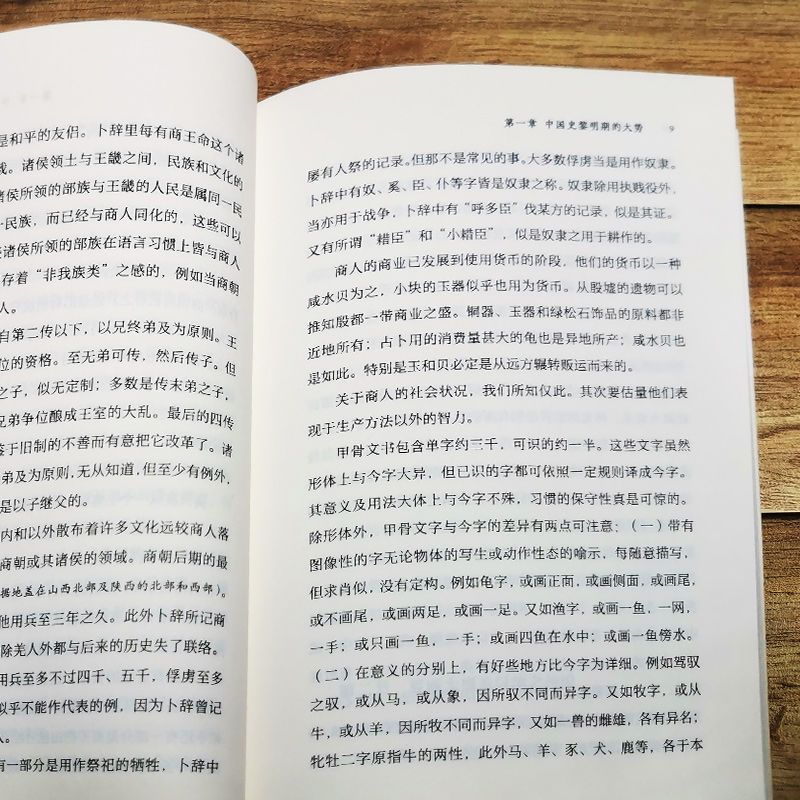 是和平的友侣。卜辞里每有商王命这个诸
我。诸侯领土与王畿之间，民族和文化的
诸侯所领的部族与王畿的人民是属同一民
一民族，而已经与商人同化的，这些可以
诸侯所领的部族在语言习惯上皆与商人
存着“非我族类”之感的，例如当商朝
人。
自第二传以下，以兄终弟及为原则。王
位的资格。至无弟可传，然后传子。但
之子，似无定制；多数是传末弟之子，
兄弟争位酿成王室的大乱。最后的四传
鉴于旧制的不善而有意把它改革了。诸
弟及为原则，无从知道，但至少有例外，
是以子继父的。
内和以外散布着许多文化远较商人落
商朝或其诸侯的领域。商朝后期的最
据地盖在山西北部及陕西的北部和西部）。
他用兵至三年之久。此外卜辞所记商
除羌人外都与后来的历史失了联络。
用兵至多不过四千、五千，俘虏至多
似乎不能作代表的例，因为卜辞曾记
人。
有一部分是用作祭祀的牺牲，卜辞中
第一章 中国史黎明期的大势 9
屡有人祭的记录。但那不是常见的事。大多数俘虏当是用作奴隶。
卜辞中有奴、奚、臣、仆等字皆是奴隶之称。奴隶除用执贱役外，
当亦用于战争，卜辞中有“呼多臣”伐某方的记录，似是其证。
又有所谓“耤臣”和“小耤臣”，似是奴隶之用于耕作的。
商人的商业已发展到使用货币的阶段，他们的货币以一种
咸水贝为之，小块的玉器似乎也用为货币。从殷墟的遗物可以
推知殷都一带商业之盛。铜器、玉器和绿松石饰品的原料都非
近地所有；占卜用的消费量甚大的龟也是异地所产；咸水贝也
是如此。特别是玉和贝必定是从远方辗转贩运而来的。
关于商人的社会状况，我们所知仅此。其次要估量他们表
现于生产方法以外的智力。
甲骨文书包含单字约三千，可识的约一半。这些文字虽然
形体上与今字大异，但已识的字都可依照一定规则译成今字。
其意义及用法大体上与今字不殊，习惯的保守性真是可惊的。
除形体外，甲骨文字与今字的差异有两点可注意：（一）带有
图像性的字无论物体的写生或动作性态的喻示，每随意描写，
但求肖似，没有定构。例如龟字，或画正面，或画侧面，或画尾，
或不画尾，或画两足，或画一足。又如渔字，或画一鱼，一网，
一手；或只画一鱼，一手；或画四鱼在水中；或画一鱼傍水。
（二）在意义的分别上，有好些地方比今字为详细。例如驾驭
之驭，或从马，或从象，因所驭不同而异字。又如牧字，或从
牛，或从羊，因所牧不同而异字，又如一兽的雌雄，各有异名；
牝牡二字原指牛的两性，此外马、羊、豕、犬、鹿等，各于本